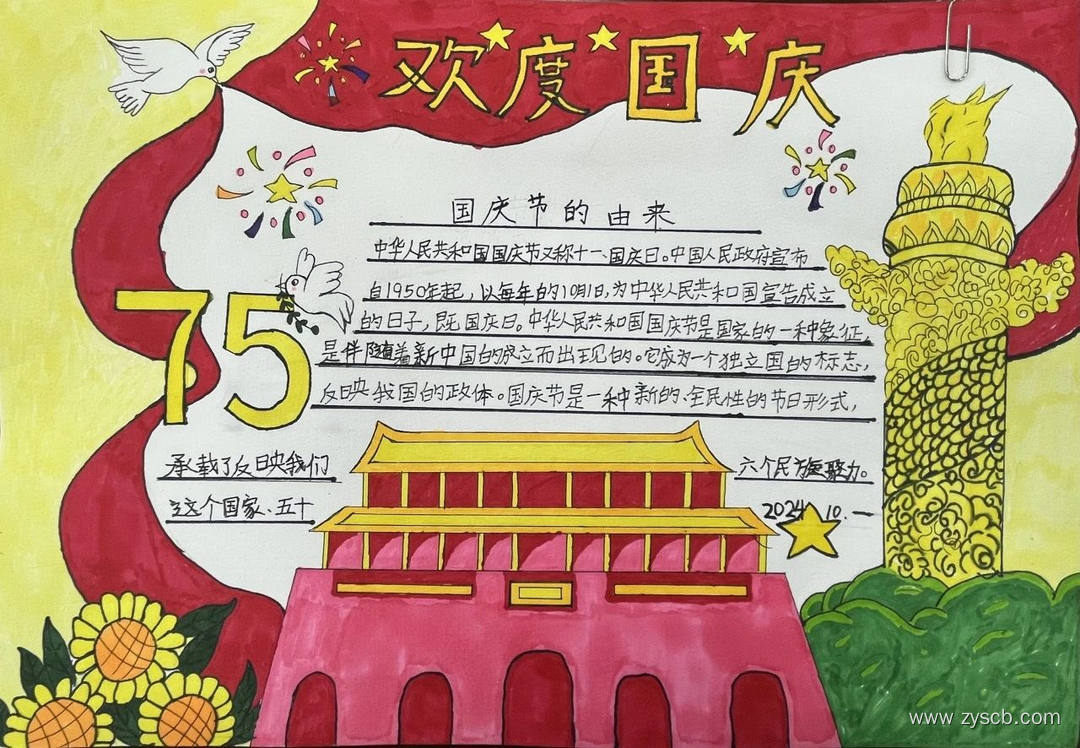 欢度国庆
国庆节的由来
中华人民共和国国庆节又称十一、国庆日。中国人民政府宣布
自1950年起，以每年的10月1日，为中华人民共和国宣告成立
的日子，既国庆日。中华人民共和国国庆节是国家的一种象征，
是伴随着新中国的成立而出现的。它成为一个独立国的标志，
反映我国的政体。国庆节是一种新的、全民性的节日形式，
承载了反映我们
六个民族凝聚力。
这个国家、五十
2024.10.一
75
www.zyscb.com